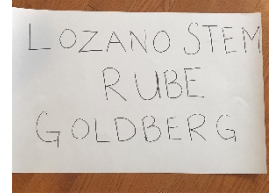 LOZANO STEM
RUBE
GOLDBERG